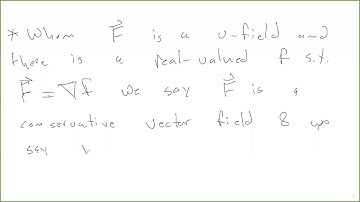 * When F⃗ is a v-field and
there is a real-valued f s.t.
F⃗ = ∇f we say F⃗ is a
conservative vector field & we
say